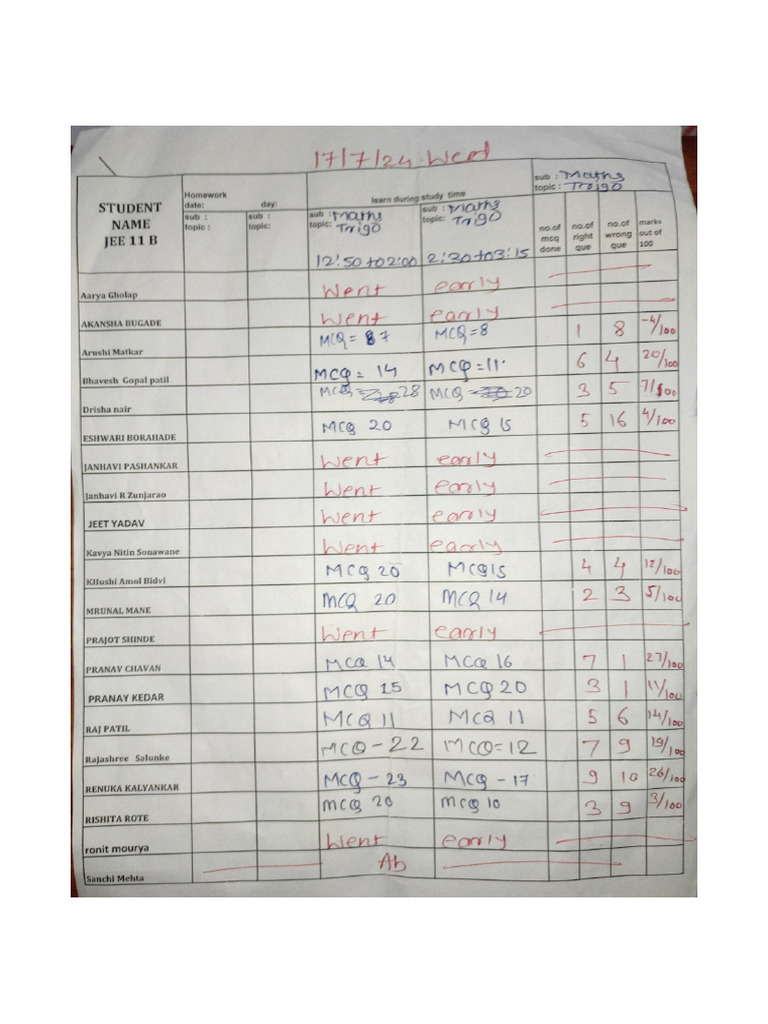 17/7/24 Wed
STUDENT NAME JEE 11 B
Homework date: day:
learn during study time
sub : Maths
topic : Trigo
sub : topic :
sub : topic:
sub : Maths topic: Trigo
sub : Maths topic: Trigo
no.of mcq done
no.of right que
no.of wrong que
marks out of 100
12:50 to 2:00 2:30 to 3:15
Aarya Gholap Went early
AKANSHA BUGADE Went early
Arushi Matkar MCQ = 7 MCQ = 8 1 8 -4/100
Bhavesh Gopal patil MCQ = 14 MCQ = 11 6 4 20/100
Drisha nair MCQ 28 MCQ 20 3 5 7/100
ESHWARI BORAHADE MCQ 20 MCQ 15 5 16 4/100
JANHAVI PASHANKAR Went early
Janhavi R Zunjarao Went early
JEET YADAV Went early
Kavya Nitin Sonawane Went early
KHushi Amol Bidvi MCQ 20 MCQ 15 4 4 12/100
MRUNAL MANE MCQ 20 MCQ 14 2 3 5/100
PRAJOT SHINDE Went early
PRANAV CHAVAN MCQ 14 MCQ 16 7 1 27/100
PRANAY KEDAR MCQ 15 MCQ 20 3 1 11/100
RAJ PATIL MCQ 11 MCQ 11 5 6 14/100
Rajashree Salunke MCQ - 22 MCQ = 12 7 9 19/100
RENUKA KALYANKAR MCQ - 23 MCQ - 17 9 10 26/100
RISHITA ROTE MCQ 20 MCQ 10 3 9 3/100
ronit mourya Went early
Sanchi Mehta Ab